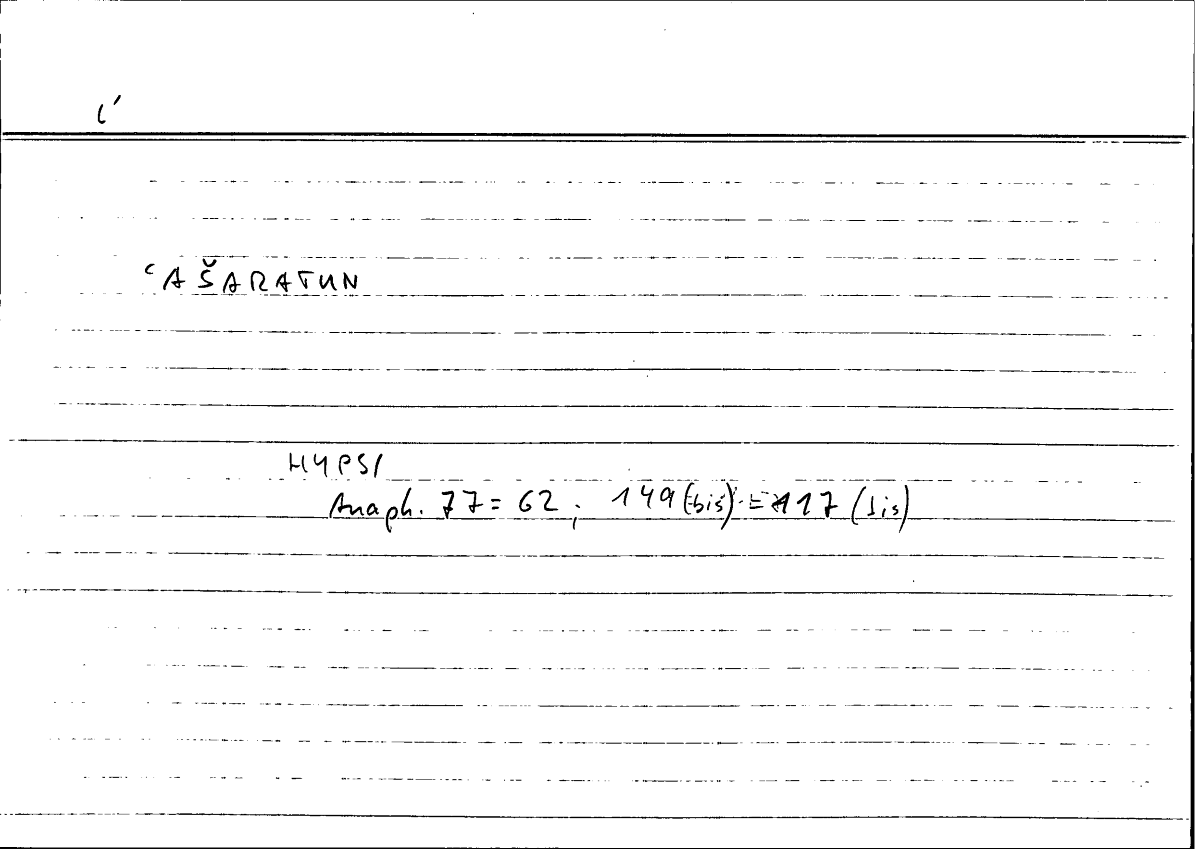 ι´
ʿAŠARATUN
HYPSI
Anaph. 77 = 62 ; 149 (bis) = 117 (bis)